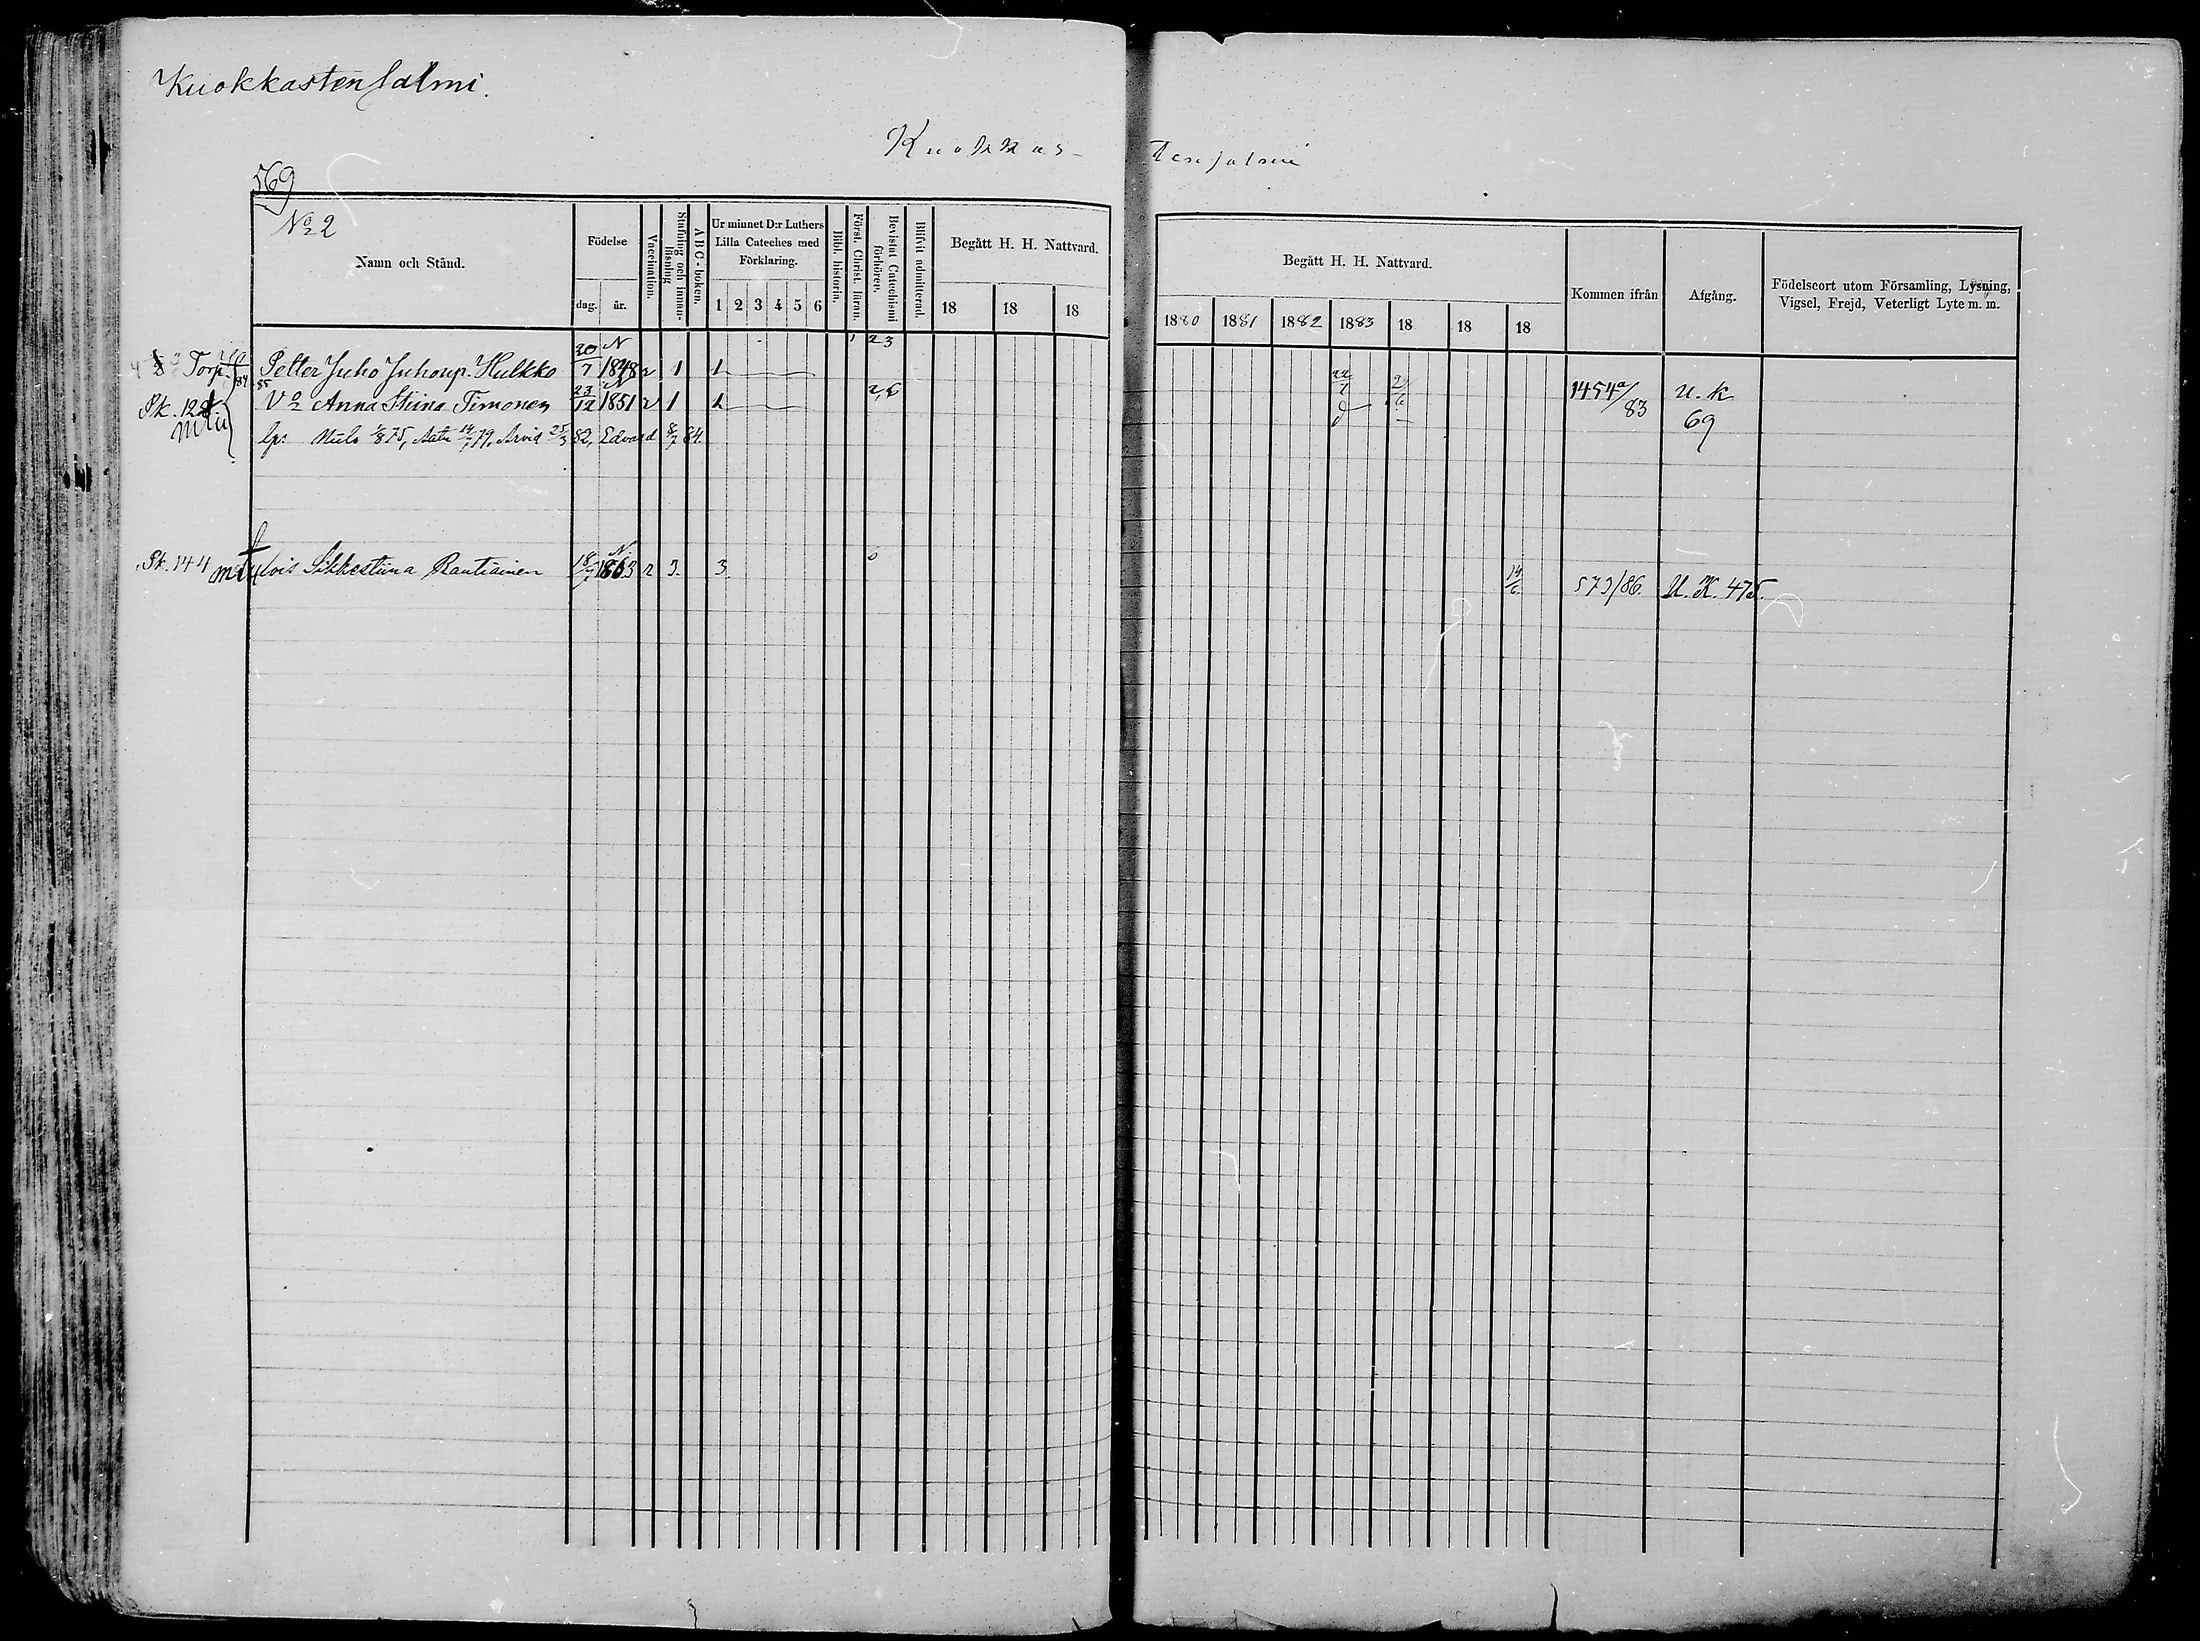 Kuokkastensalmi.
Kuokkas- tensalmi
569
No 2
Namn och Stånd.
Födelse
dag. år.
Vaccination.
Stafning och innan-läsning
ABC-boken.
Ur minnet D:r Luthers Lilla Cateches med Förklaring.
1 2 3 4 5 6
Bibl. historia.
Först. Christ. läran.
Bevistat Catechismi förhören.
Blifvit admitterad.
Begått H. H. Nattvard.
18 18 18
Begått H. H. Nattvard.
1880 1881 1882 1883 18 18 18
Kommen ifrån
Afgång.
Födelseort utom Församling, Lysning, Vigsel, Frejd, Veterligt Lyte m. m.
Torp. Petter Juho Juhonp. Hulkko 20/7 N 1848 v 1 1 23
Sk. 122. Vo Anna Stiina Timonen 23/12 N 1851 v 1 1 2,6 1454a/83 U. K 69
lps 1/8 75, 14/7 79, Arvid 25/3 82, Edvard 8/7 84.
Sk. 144 lois Sikkestiina Rautiainen 18/7 N. 1863 v 3. 3. 6 14/6 573/86. U. K. 475.